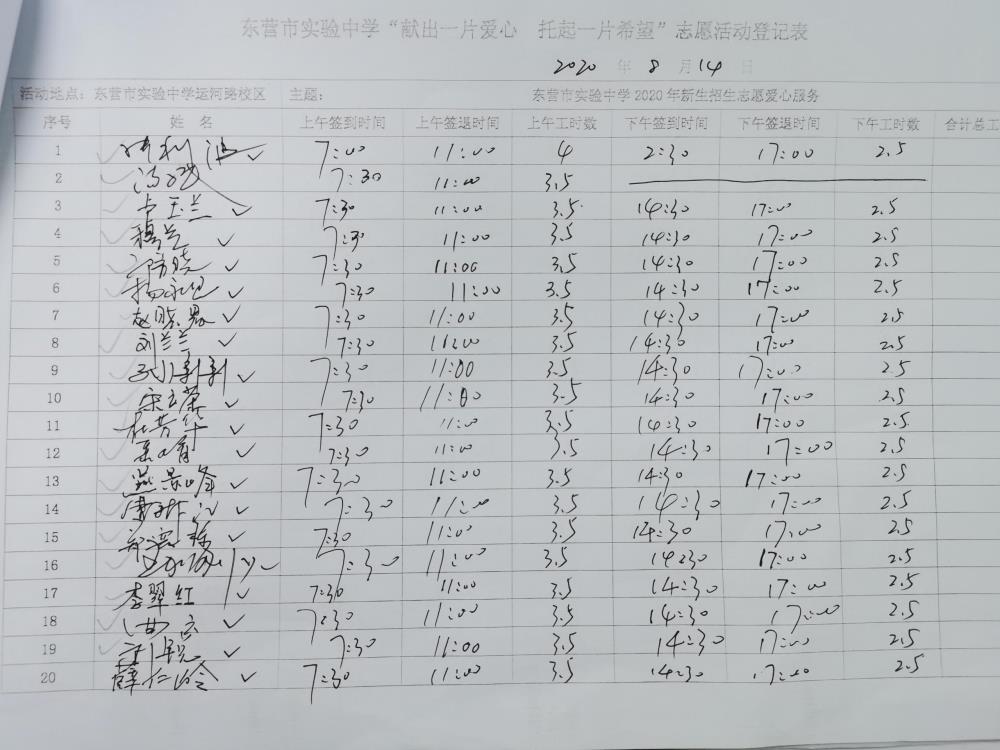 东营市实验中学“献出一片爱心 托起一片希望”志愿活动登记表
2020 年 8 月 14 日
活动地点: 东营市实验中学运河路校区 主题: 东营市实验中学2020年新生招生志愿爱心服务
序号 姓 名 上午签到时间 上午签退时间 上午工时数 下午签到时间 下午签退时间 下午工时数 合计总工
1 7:00 11:00 4 2:30 17:00 2.5
2 7:30 11:00 3.5
3 卢玉兰 7:30 11:00 3.5 14:30 17:00 2.5
4 7:30 11:00 3.5 14:30 17:00 2.5
5 7:30 11:00 3.5 14:30 17:00 2.5
6 7:30 11:00 3.5 14:30 17:00 2.5
7 7:30 11:00 3.5 14:30 17:00 2.5
8 刘兰兰 7:30 11:00 3.5 14:30 17:00 2.5
9 7:30 11:00 3.5 14:30 17:00 2.5
10 7:30 11:00 3.5 14:30 17:00 2.5
11 杜芳华 7:30 11:00 3.5 14:30 17:00 2.5
12 7:30 11:00 3.5 14:30 17:00 2.5
13 燕景峰 7:30 11:00 3.5 14:30 17:00 2.5
14 7:30 11:00 3.5 14:30 17:00 2.5
15 7:30 11:00 3.5 14:30 17:00 2.5
16 7:30 11:00 3.5 14:30 17:00 2.5
17 李翠红 7:30 11:00 3.5 14:30 17:00 2.5
18 7:30 11:00 3.5 14:30 17:00 2.5
19 7:30 11:00 3.5 14:30 17:00 2.5
20 薛仁玲 7:30 11:00 3.5 14:30 17:00 2.5